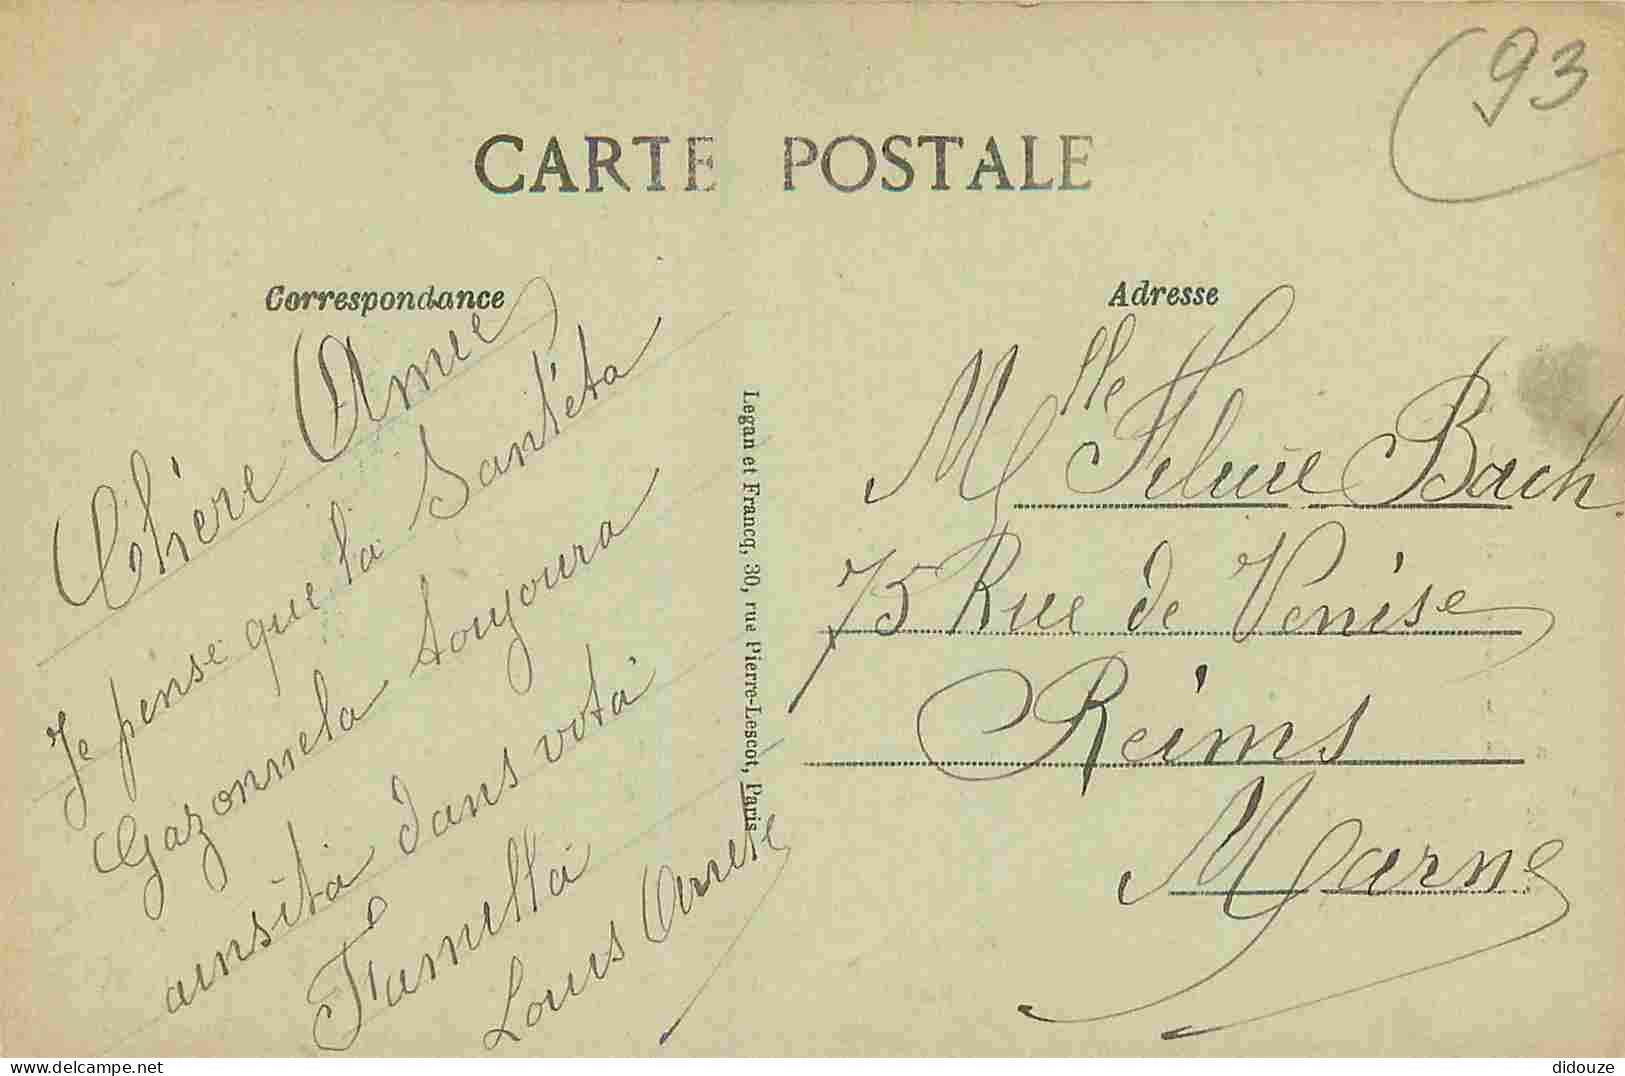 93
CARTE POSTALE
Correspondance
Adresse
Chère Amie
Je pense que la Santéta
Gazonnela toujoura
ainsita dans vota
Famillia
Louis
Legan et Francq, 30, rue Pierre-Lescot, Paris
Mlle Bach
75 Rue de Venise
Reims
Marne
didouze